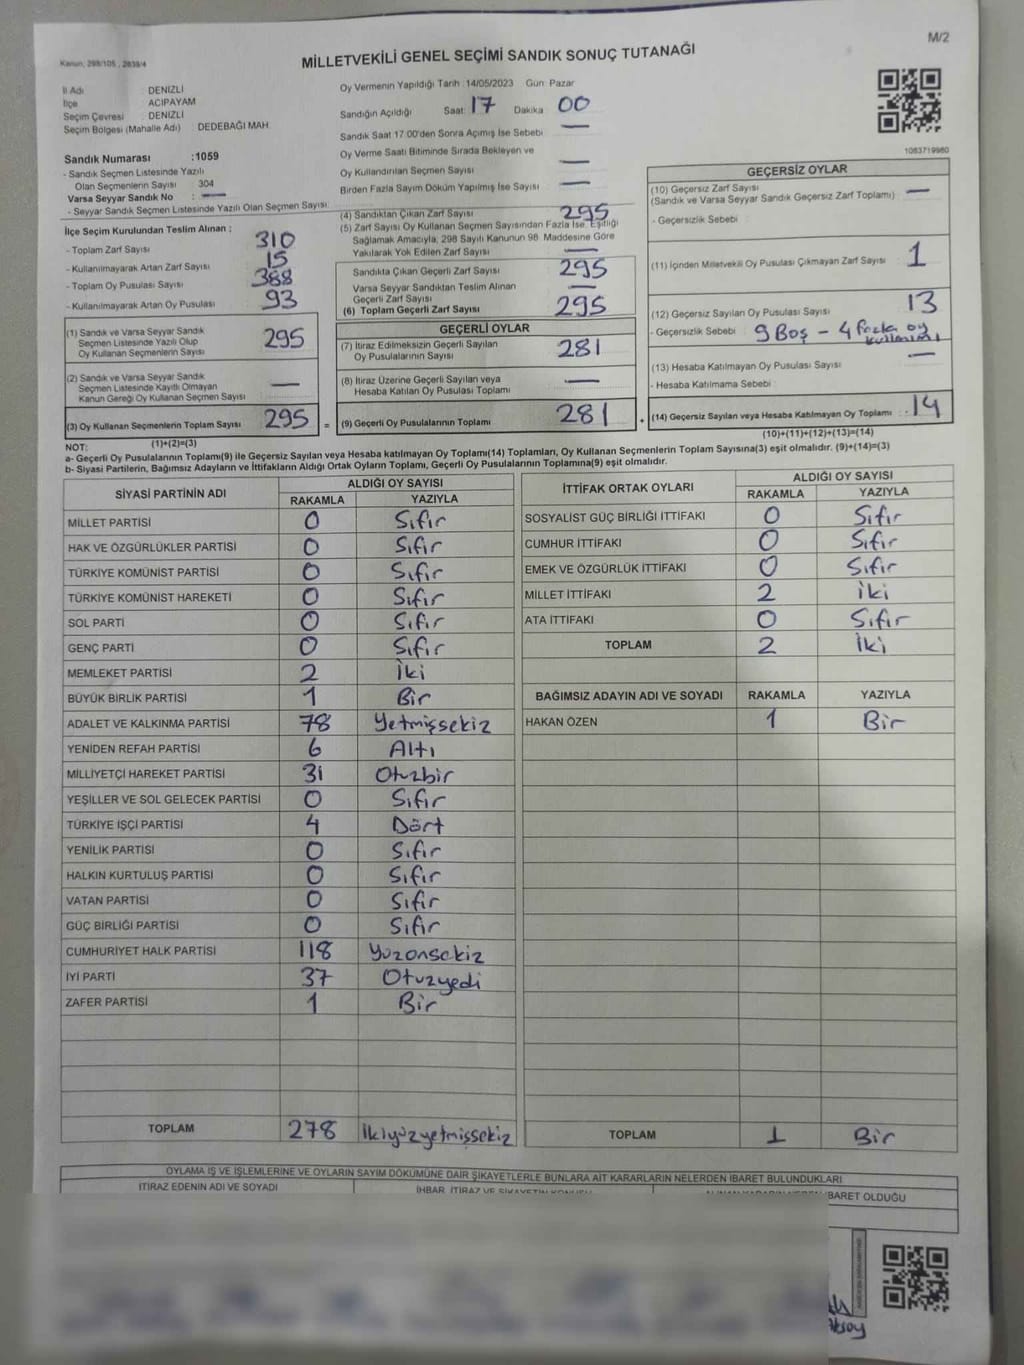 M/2
Kanun, 298/105 , 2839/4
MİLLETVEKİLİ GENEL SEÇİMİ SANDIK SONUÇ TUTANAĞI
İl Adı : DENİZLİ
İlçe : ACIPAYAM
Seçim Çevresi : DENİZLİ
Seçim Bölgesi (Mahalle Adı) : DEDEBAĞI MAH.
Sandık Numarası :1059
- Sandık Seçmen Listesinde Yazılı
Olan Seçmenlerin Sayısı : 304
Varsa Seyyar Sandık No : —
- Seyyar Sandık Seçmen Listesinde Yazılı Olan Seçmen Sayısı:
İlçe Seçim Kurulundan Teslim Alınan ;
- Toplam Zarf Sayısı : 310
- Kullanılmayarak Artan Zarf Sayısı : 15
- Toplam Oy Pusulası Sayısı : 388
- Kullanılmayarak Artan Oy Pusulası : 93
(1) Sandık ve Varsa Seyyar Sandık
Seçmen Listesinde Yazılı Olup
Oy Kullanan Seçmenlerin Sayısı : 295
(2) Sandık ve Varsa Seyyar Sandık
Seçmen Listesinde Kayıtlı Olmayan
Kanun Gereği Oy Kullanan Seçmen Sayısı : —
(3) Oy Kullanan Seçmenlerin Toplam Sayısı : 295
(1)+(2)=(3)
Oy Vermenin Yapıldığı Tarih :14/05/2023 Gün: Pazar
Sandığın Açıldığı Saat: 17 Dakika 00
Sandık Saat 17:00'den Sonra Açımış İse Sebebi : —
Oy Verme Saati Bitiminde Sırada Bekleyen ve
Oy Kullandırılan Seçmen Sayısı : —
Birden Fazla Sayım Döküm Yapılmış İse Sayısı : —
(4) Sandıktan Çıkan Zarf Sayısı : 295
(5) Zarf Sayısı Oy Kullanan Seçmen Sayısından Fazla İse, Eşitliği
Sağlamak Amacıyla, 298 Sayılı Kanunun 98. Maddesine Göre
Yakılarak Yok Edilen Zarf Sayısı : —
Sandıkta Çıkan Geçerli Zarf Sayısı : 295
Varsa Seyyar Sandıktan Teslim Alınan
Geçerli Zarf Sayısı : —
(6) Toplam Geçerli Zarf Sayısı : 295
GEÇERLİ OYLAR
(7) İtiraz Edilmeksizin Geçerli Sayılan
Oy Pusulalarının Sayısı : 281
(8) İtiraz Üzerine Geçerli Sayılan veya
Hesaba Katılan Oy Pusulası Toplamı : —
= (9) Geçerli Oy Pusulalarının Toplamı : 281
1083719980
GEÇERSİZ OYLAR
(10) Geçersiz Zarf Sayısı
(Sandık ve Varsa Seyyar Sandık Geçersiz Zarf Toplamı) : —
- Geçersizlik Sebebi :
(11) İçinden Milletvekili Oy Pusulası Çıkmayan Zarf Sayısı : 1
(12) Geçersiz Sayılan Oy Pusulası Sayısı : 13
- Geçersizlik Sebebi : 9 Boş - 4 fazla oy
(13) Hesaba Katılmayan Oy Pusulası Sayısı : —
- Hesaba Katılmama Sebebi :
+ (14) Geçersiz Sayılan veya Hesaba Katılmayan Oy Toplamı : 14
(10)+(11)+(12)+(13)=(14)
NOT:
a- Geçerli Oy Pusulalarının Toplamı(9) ile Geçersiz Sayılan veya Hesaba katılmayan Oy Toplamı(14) Toplamları, Oy Kullanan Seçmenlerin Toplam Sayısına(3) eşit olmalıdır. (9)+(14)=(3)
b- Siyasi Partilerin, Bağımsız Adayların ve İttifakların Aldığı Ortak Oyların Toplamı, Geçerli Oy Pusulalarının Toplamına(9) eşit olmalıdır.
SİYASİ PARTİNİN ADI ALDIĞI OY SAYISI
RAKAMLA YAZIYLA
MİLLET PARTİSİ 0 Sıfır
HAK VE ÖZGÜRLÜKLER PARTİSİ 0 Sıfır
TÜRKİYE KOMÜNİST PARTİSİ 0 Sıfır
TÜRKİYE KOMÜNİST HAREKETİ 0 Sıfır
SOL PARTİ 0 Sıfır
GENÇ PARTİ 0 Sıfır
MEMLEKET PARTİSİ 2 İki
BÜYÜK BİRLİK PARTİSİ 1 Bir
ADALET VE KALKINMA PARTİSİ 78 Yetmişsekiz
YENİDEN REFAH PARTİSİ 6 Altı
MİLLİYETÇİ HAREKET PARTİSİ 31 Otuzbir
YEŞİLLER VE SOL GELECEK PARTİSİ 0 Sıfır
TÜRKİYE İŞÇİ PARTİSİ 4 Dört
YENİLİK PARTİSİ 0 Sıfır
HALKIN KURTULUŞ PARTİSİ 0 Sıfır
VATAN PARTİSİ 0 Sıfır
GÜÇ BİRLİĞİ PARTİSİ 0 Sıfır
CUMHURİYET HALK PARTİSİ 118 Yüzonsekiz
İYİ PARTİ 37 Otuzyedi
ZAFER PARTİSİ 1 Bir
TOPLAM 278 İkiyüzyetmişsekiz
İTTİFAK ORTAK OYLARI ALDIĞI OY SAYISI
RAKAMLA YAZIYLA
SOSYALİST GÜÇ BİRLİĞİ İTTİFAKI 0 Sıfır
CUMHUR İTTİFAKI 0 Sıfır
EMEK VE ÖZGÜRLÜK İTTİFAKI 0 Sıfır
MİLLET İTTİFAKI 2 İki
ATA İTTİFAKI 0 Sıfır
TOPLAM 2 İki
BAĞIMSIZ ADAYIN ADI VE SOYADI RAKAMLA YAZIYLA
HAKAN ÖZEN 1 Bir
TOPLAM 1 Bir
OYLAMA İŞ VE İŞLEMLERİNE VE OYLARIN SAYIM DÖKÜMÜNE DAİR ŞİKAYETLERLE BUNLARA AİT KARARLARIN NELERDEN İBARET BULUNDUKLARI
İTİRAZ EDENİN ADI VE SOYADI
İHBAR, İTİRAZ VE ŞİKAYETİN KONUSU
BARET OLDUĞU